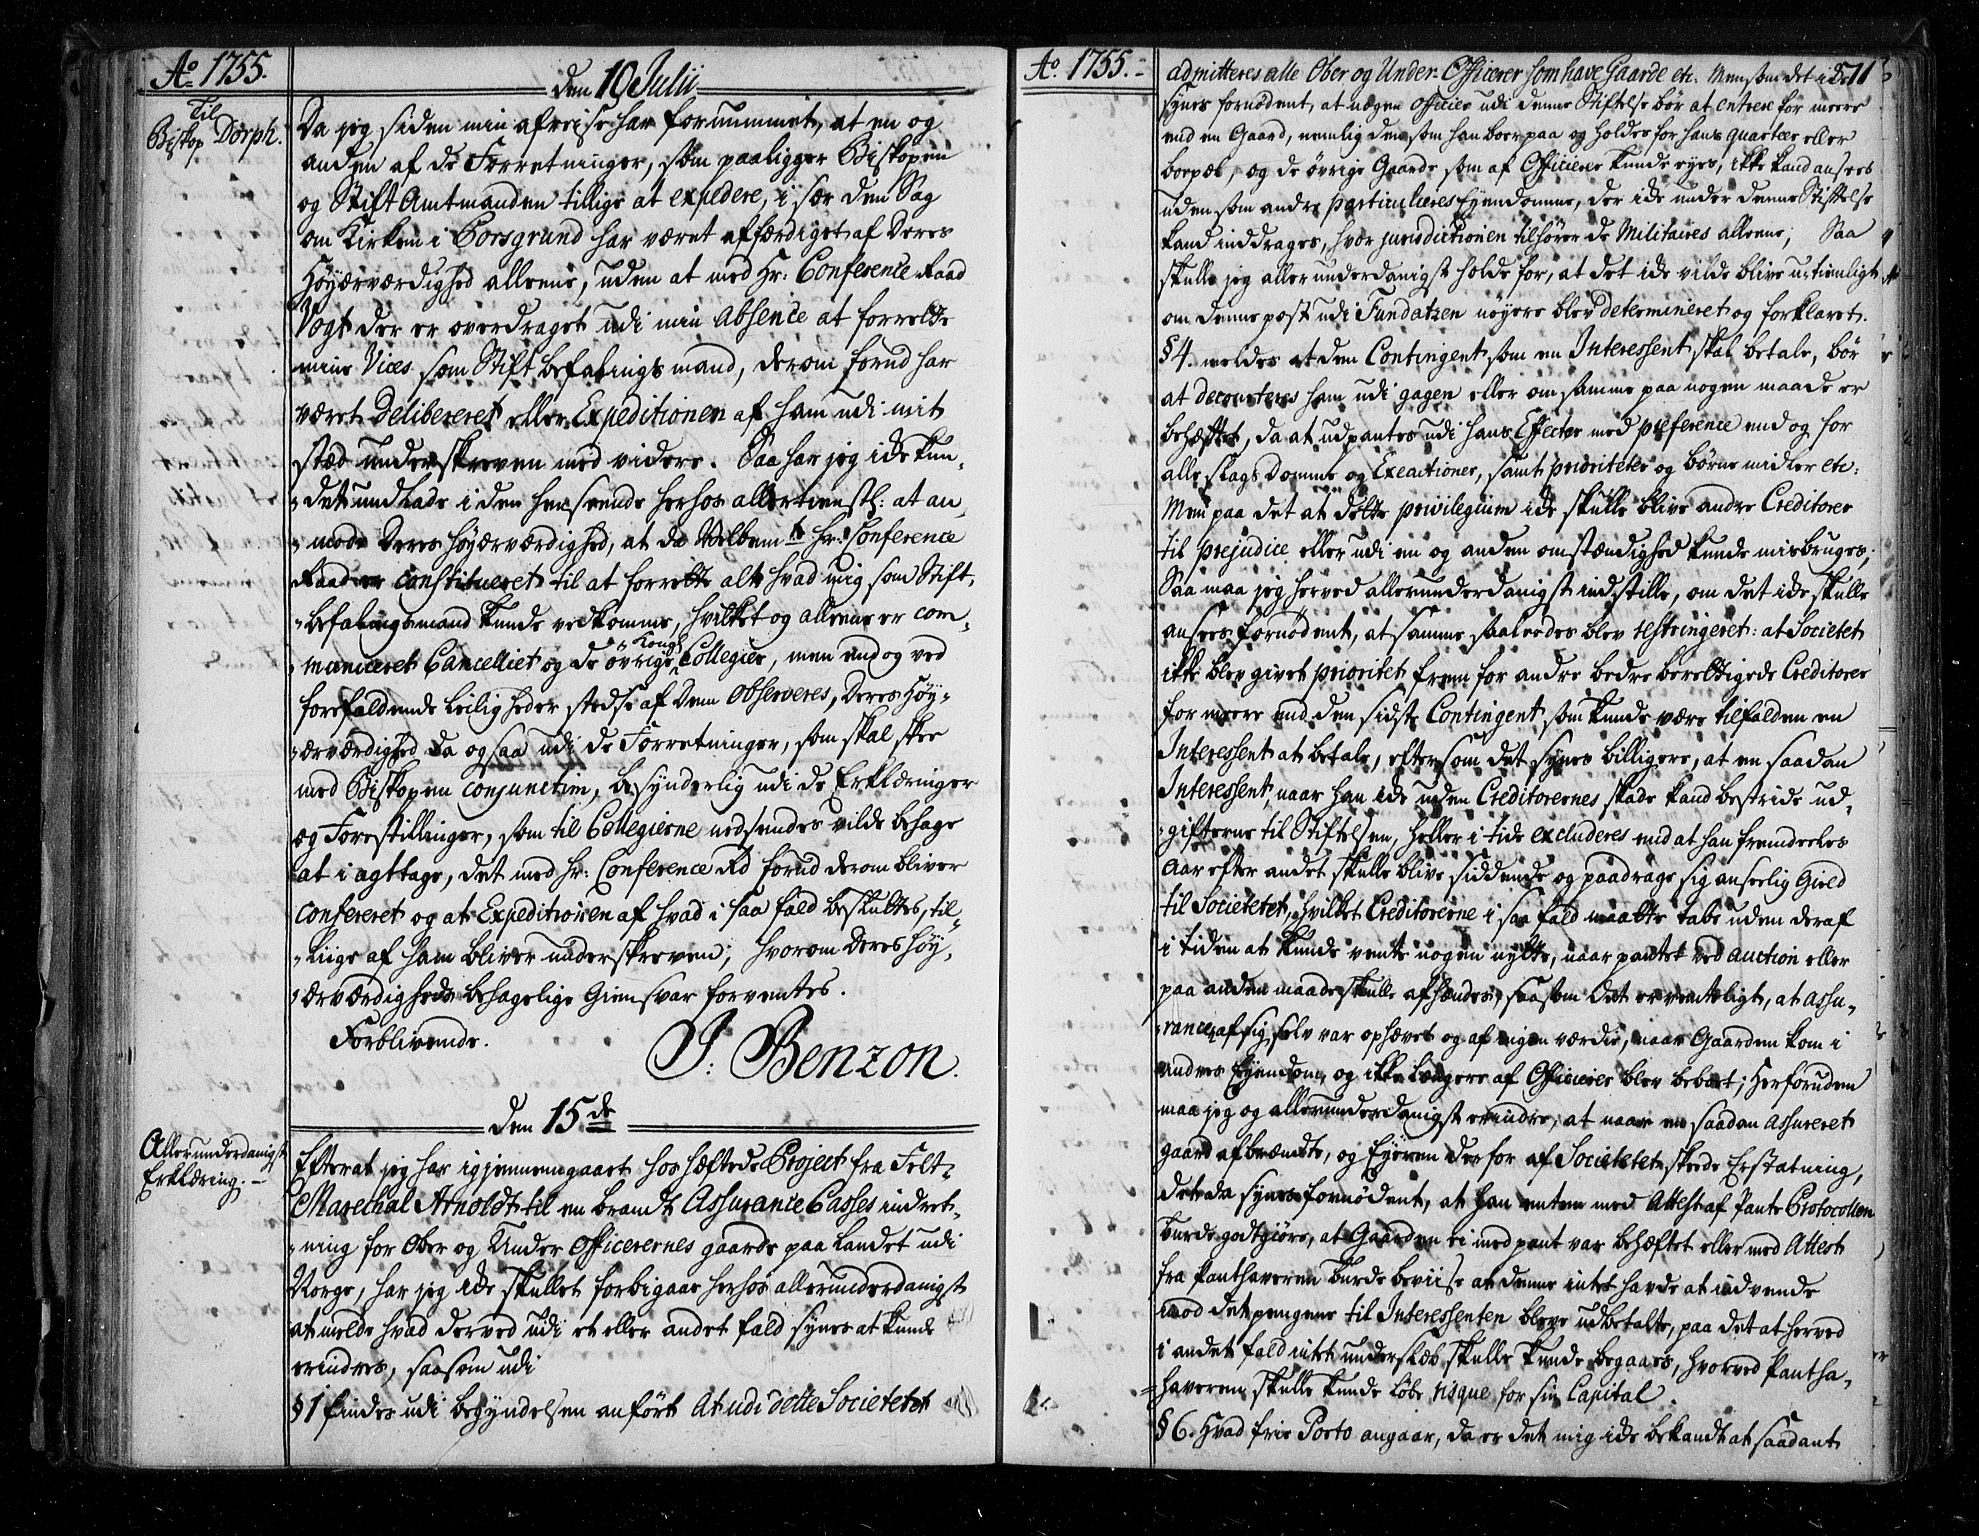 Ao 1755.
den 10 Julii
Til
Biskop Dorph.
Da jeg siden min afreise har fornummet, at en og
anden af de Forretninger, som paaligger Biskopen
og Stift Amtmanden tillige at expedere, i sær den Sag
om Kirken i Porsgrund har været affærdiget af Deres
Høyærværdighed alleene, uden at med Hr: Conference Raad
Vogt der er overdraget udi min Absence at forrette
mine Vices som Stift befalings mand, derom forud har
været Delibereret eller Expeditionen af ham udi mit
stæd underskreven med videre. Saa har jeg icke kun,
„det undlade i den henseende herhos allertienstl: at an,
„mode Deres Høyærværdighed, at da Velbemte Hr: Conference
Raad er constitueret til at forrette alt hvad mig som Stift,
„befalingsmand kunde vedkomme, hvilket og alleene er com,
„municeret Cancelliet og de øvrige Kongl Collegier, men end og ved
forefaldende Leiligheder stedse af dem observeres, Deres Høy„
„ærværdighed da ogsaa udi de Forretninger, som skal skee
med Biskopen conjunctim, besynderlig udi de Erklæringer
og Forestillinger, som til Collegierne nedsendes vilde behage
at i agttage, det med hr: Conference Rd forud derom bliver
confereret og at Expeditionen af hvad i saa fald besluttes, til„
„liige af ham bliver underskreven; hvorom Deres Høy„
„ærværdigheds behagelige Giensvar forventes.
Forblivende.
J: Benzon.
den 15de
Allerunderdanigst
Erklæring. –
Efterat jeg har igjennemgaaet hoshæftede Project fra Felt„
Marechal Arnoldt til en brandt Assurance Casses indret„
„ning for Ober og Under Officerernes gaarde paa Landet udi
Norge, har jeg icke skullet forbigaae herhos allerunderdanigst
at melde hvad derved udi et eller andet fald synes at kunde
erindres, saasom udi
§ 1 findes udi begyndelsen anført At udi dette Societetet
Ao. 1755. –
571
admitteres alle Ober og Under Officerer som have Gaarde etc. Men som det icke
synes fornødent, at nogen Officier udi denne Stiftelse bør at entrere for meere
end en Gaard, nemlig den som han boer paa og holdes for hans quarteer eller
boepæl, og de øvrige Gaarde som af Officierer kunde eyes, ikke kand ansees
uden som andre particulieres Eyendomme, der icke under denne Stiftelse
kand inddrages, hvor jurisdictionen tilhører de Militaires alleene; Saa
skulle jeg allerunderdanigst holde for, at det icke vilde blive utienligt
om denne post udi Fundatzen nøyere blev determineret og forklaret.
§ 4. meldes at den Contingent som en Interessent skal betale, bør
at decourteres ham udi gagen eller om samme paa nogen maade er
behæftet, da at udpantes udi hans Effecter med preference end og for
alle slags Domme og Execcutioner, samt prioriteter og børne midler etc:
Men paa det at dette privilegium icke skulle blive andre Creditorer
til prejudice eller udi en og anden omstændighed kunde misbruges;
Saa maa jeg herved allerunderdanigst indstille, om det icke skulle
ansees fornødent, at samme saaledes blev restringeret: at Societet
ikke blev givet prioritet frem for andre bedre berettigede Creditorer
for meere end den sidste Contingent som kunde være tilfalden en
Interessent at betale, efter som det synes billigere, at en saadan
Interessent, naar han icke uden Creditorernes skade kand bestride ud„
„gifterne til Stiftelsen, heller i tide excluderes end at han fremdeeles
Aar efter andet skulle blive siddende og paadrage sig anseelig Gield
til Societetet, hvilket Creditorerne i saa fald maatte tabe uden deraf
i tiden at kunde vente nogen nytte, naar pantet ved auction eller
paa anden maade skulle afhændes, saasom det er venteligt, at assu„
„rancen af sig selv var ophævet og af ingen værdie, naar Gaarden kom i
andres Eyendom, og ikke længere af Officerer blev beboet; Herforuden
maa jeg og allerunderdanigst erindre, at naar en saadan assureret
gaard afbrændte, og Eyeren derfor af Societetet skeede Erstatning,
det da synes fornødent, at han enten med Attest af Pante Protocollen
burde godtgiøre, at Gaarden ei med pant var behæftet eller med Attest
fra Panthaveren burde beviise at denne intet havde at indvende
imod det pengene til Interessenten bleve udbetalte, paa det at herved
i andet fald intet underslæb skulle kunde begaaes, hvorved Pantha„
„haveren skulle kunde løbe risque for sin Capital.
§ 6. Hvad frie Porto angaar, da er det mig icke bekandt at saadant